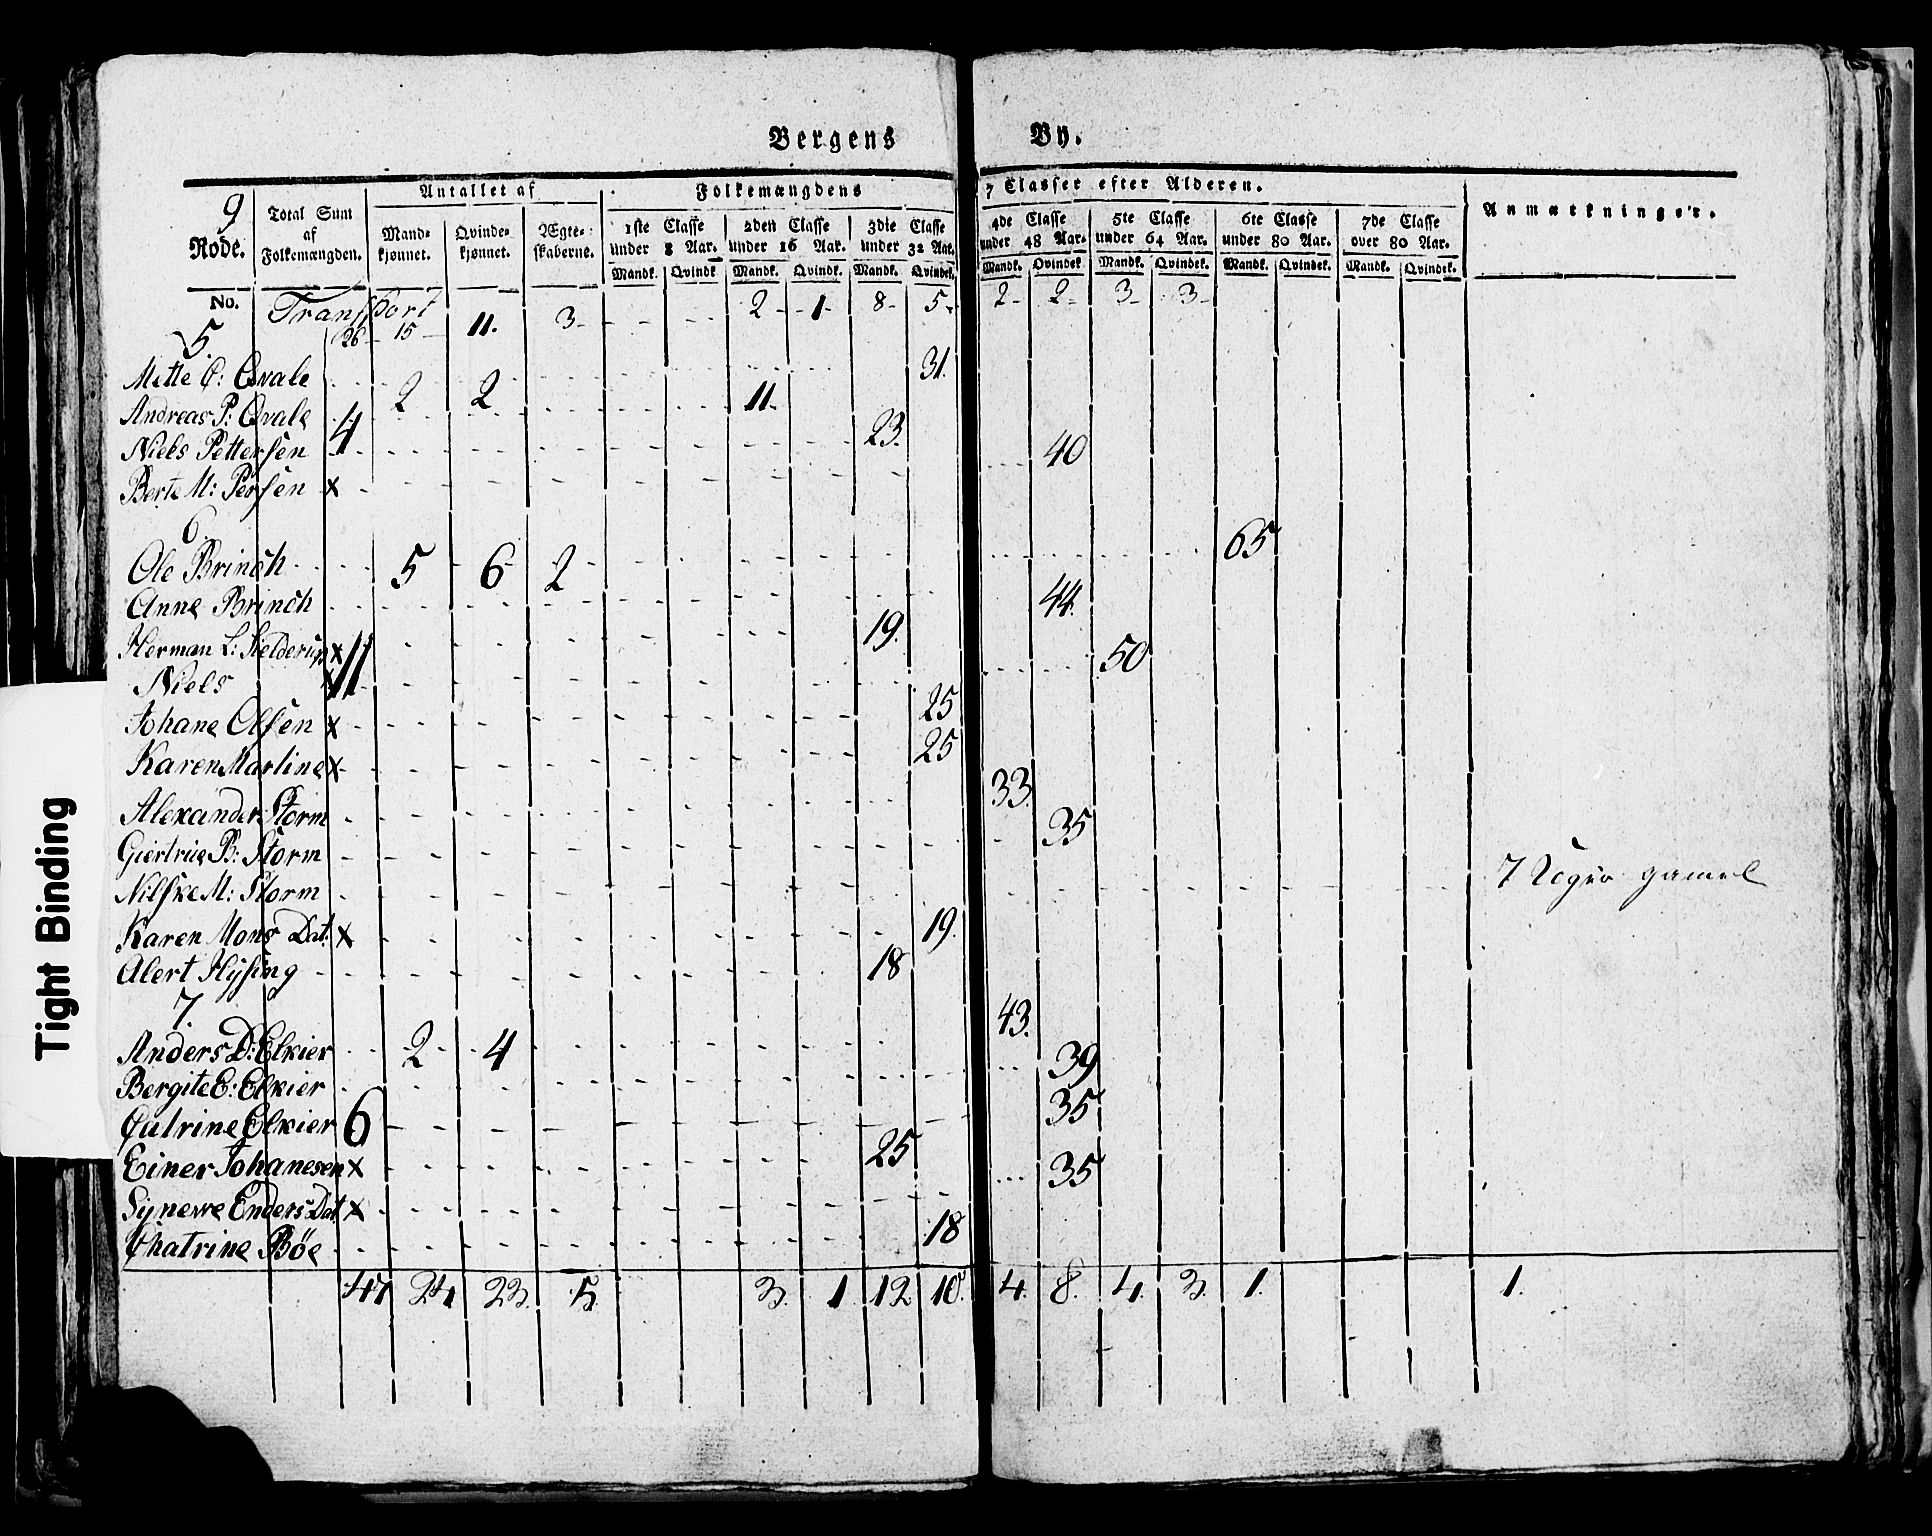 Bergens By.
9
Rode.
Total Sum af Folkemængden.
Antallet af
Mand-kjønnet.
Qvinde-kjønnet.
Ægte-skaberne.
Folkemængdens 7 Classer efter Alderen.
1ste Classe under 8 Aar.
2den Classe under 16 Aar.
3die Classe under 32 Aar.
4de Classe under 48 Aar.
5te Classe under 64 Aar.
6te Classe under 80 Aar.
7de Classe over 80 Aar.
Anmærkninger.
Mandk. Qvindk. Mandk. Qvindk. Mandk. Qvindek. Mandk. Qvindek. Mandk. Qvindek. Mandk. Qvindek. Mandk. Qvindek.
No. Transport 26 15 11. 3 2 1 8 5 2 2 3 3
5.
Mette C: Qvale 2 2 31.
Andreas P: Qvale 4 11.
Niels Pettersen 23.
Berte M: Persen x 40
6.
Ole Brinch 5 6 2 65
Anne Brinch 44.
Herman L: Hielderup x 11 19.
Niels x 50
Johane Olsen x 25
Karen Martine x 25
Alexander Storm 33.
Giertrue B: Storm 35
Nilske M: Storm 7 Uger gamel
Karen Mons Dat. x 19.
Alert Hysing 18
7.
Anders D: Elkier 2 4 43.
Bergite E: Elkier 39
Catrine Elkier 6 35
Einer Johanesen x 25
Synewe Enders Dat. x 35
Chatrine Bøe 18
47 24 23. 5. 3. 1 12 10. 4. 8. 4. 3. 1. 1.
Tight Binding